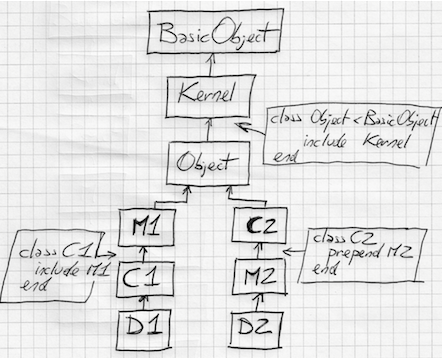 BasicObject
Kernel
class Object < BasicObject
include Kernel
end
Object
M1
C2
class C1
include M1
end
class C2
prepend M2
end
C1
M2
D1
D2